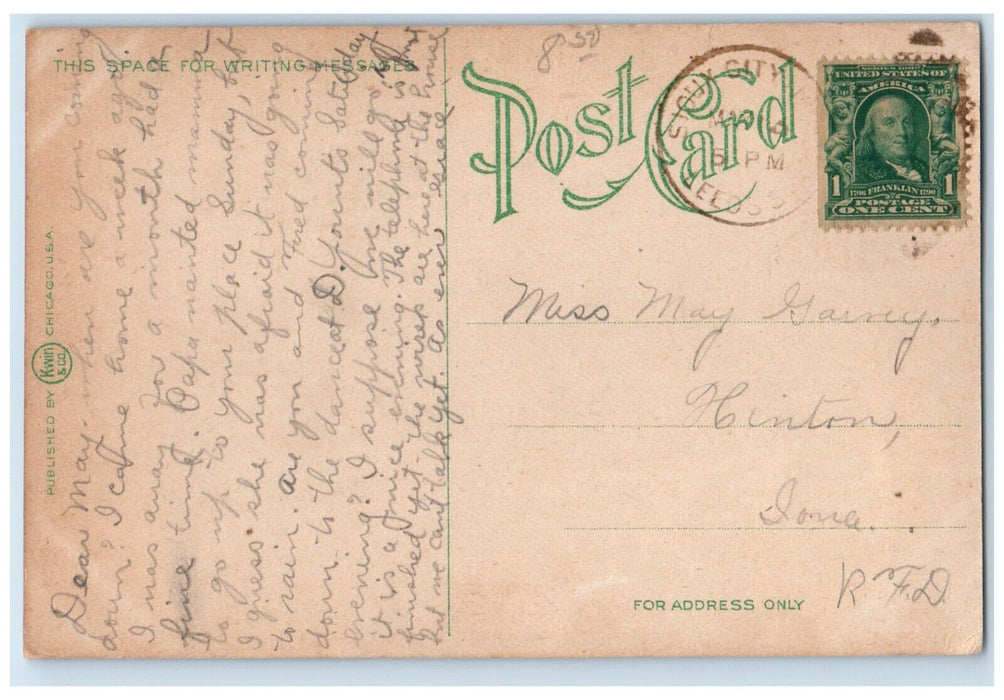 THIS SPACE FOR WRITING MESSAGES
8 50
POST CARD
SIOUX CITY
5 PM
SERIES 1902
UNITED STATES OF
AMERICA
1 1706 FRANKLIN 1790 1
POSTAGE
ONE CENT
Miss May Garvey.
Hinton,
Iowa.
R.F.D.
FOR ADDRESS ONLY
PUBLISHED BY Kwin & Co. CHICAGO, U.S.A.
Dear May- when are you coming
down? I came home a week ago,
I was away for a month had a
fine time. Papa wanted mamma
to go up to your place Sunday, but
I guess she was afraid it was going
to rain. are you and Fred coming
down to the dance at D. Younts Saturday
evening? I suppose you will go if
it is a nice evening. The telephone is not
finished yet- the wires are here at the house
but we can't talk yet. As ever